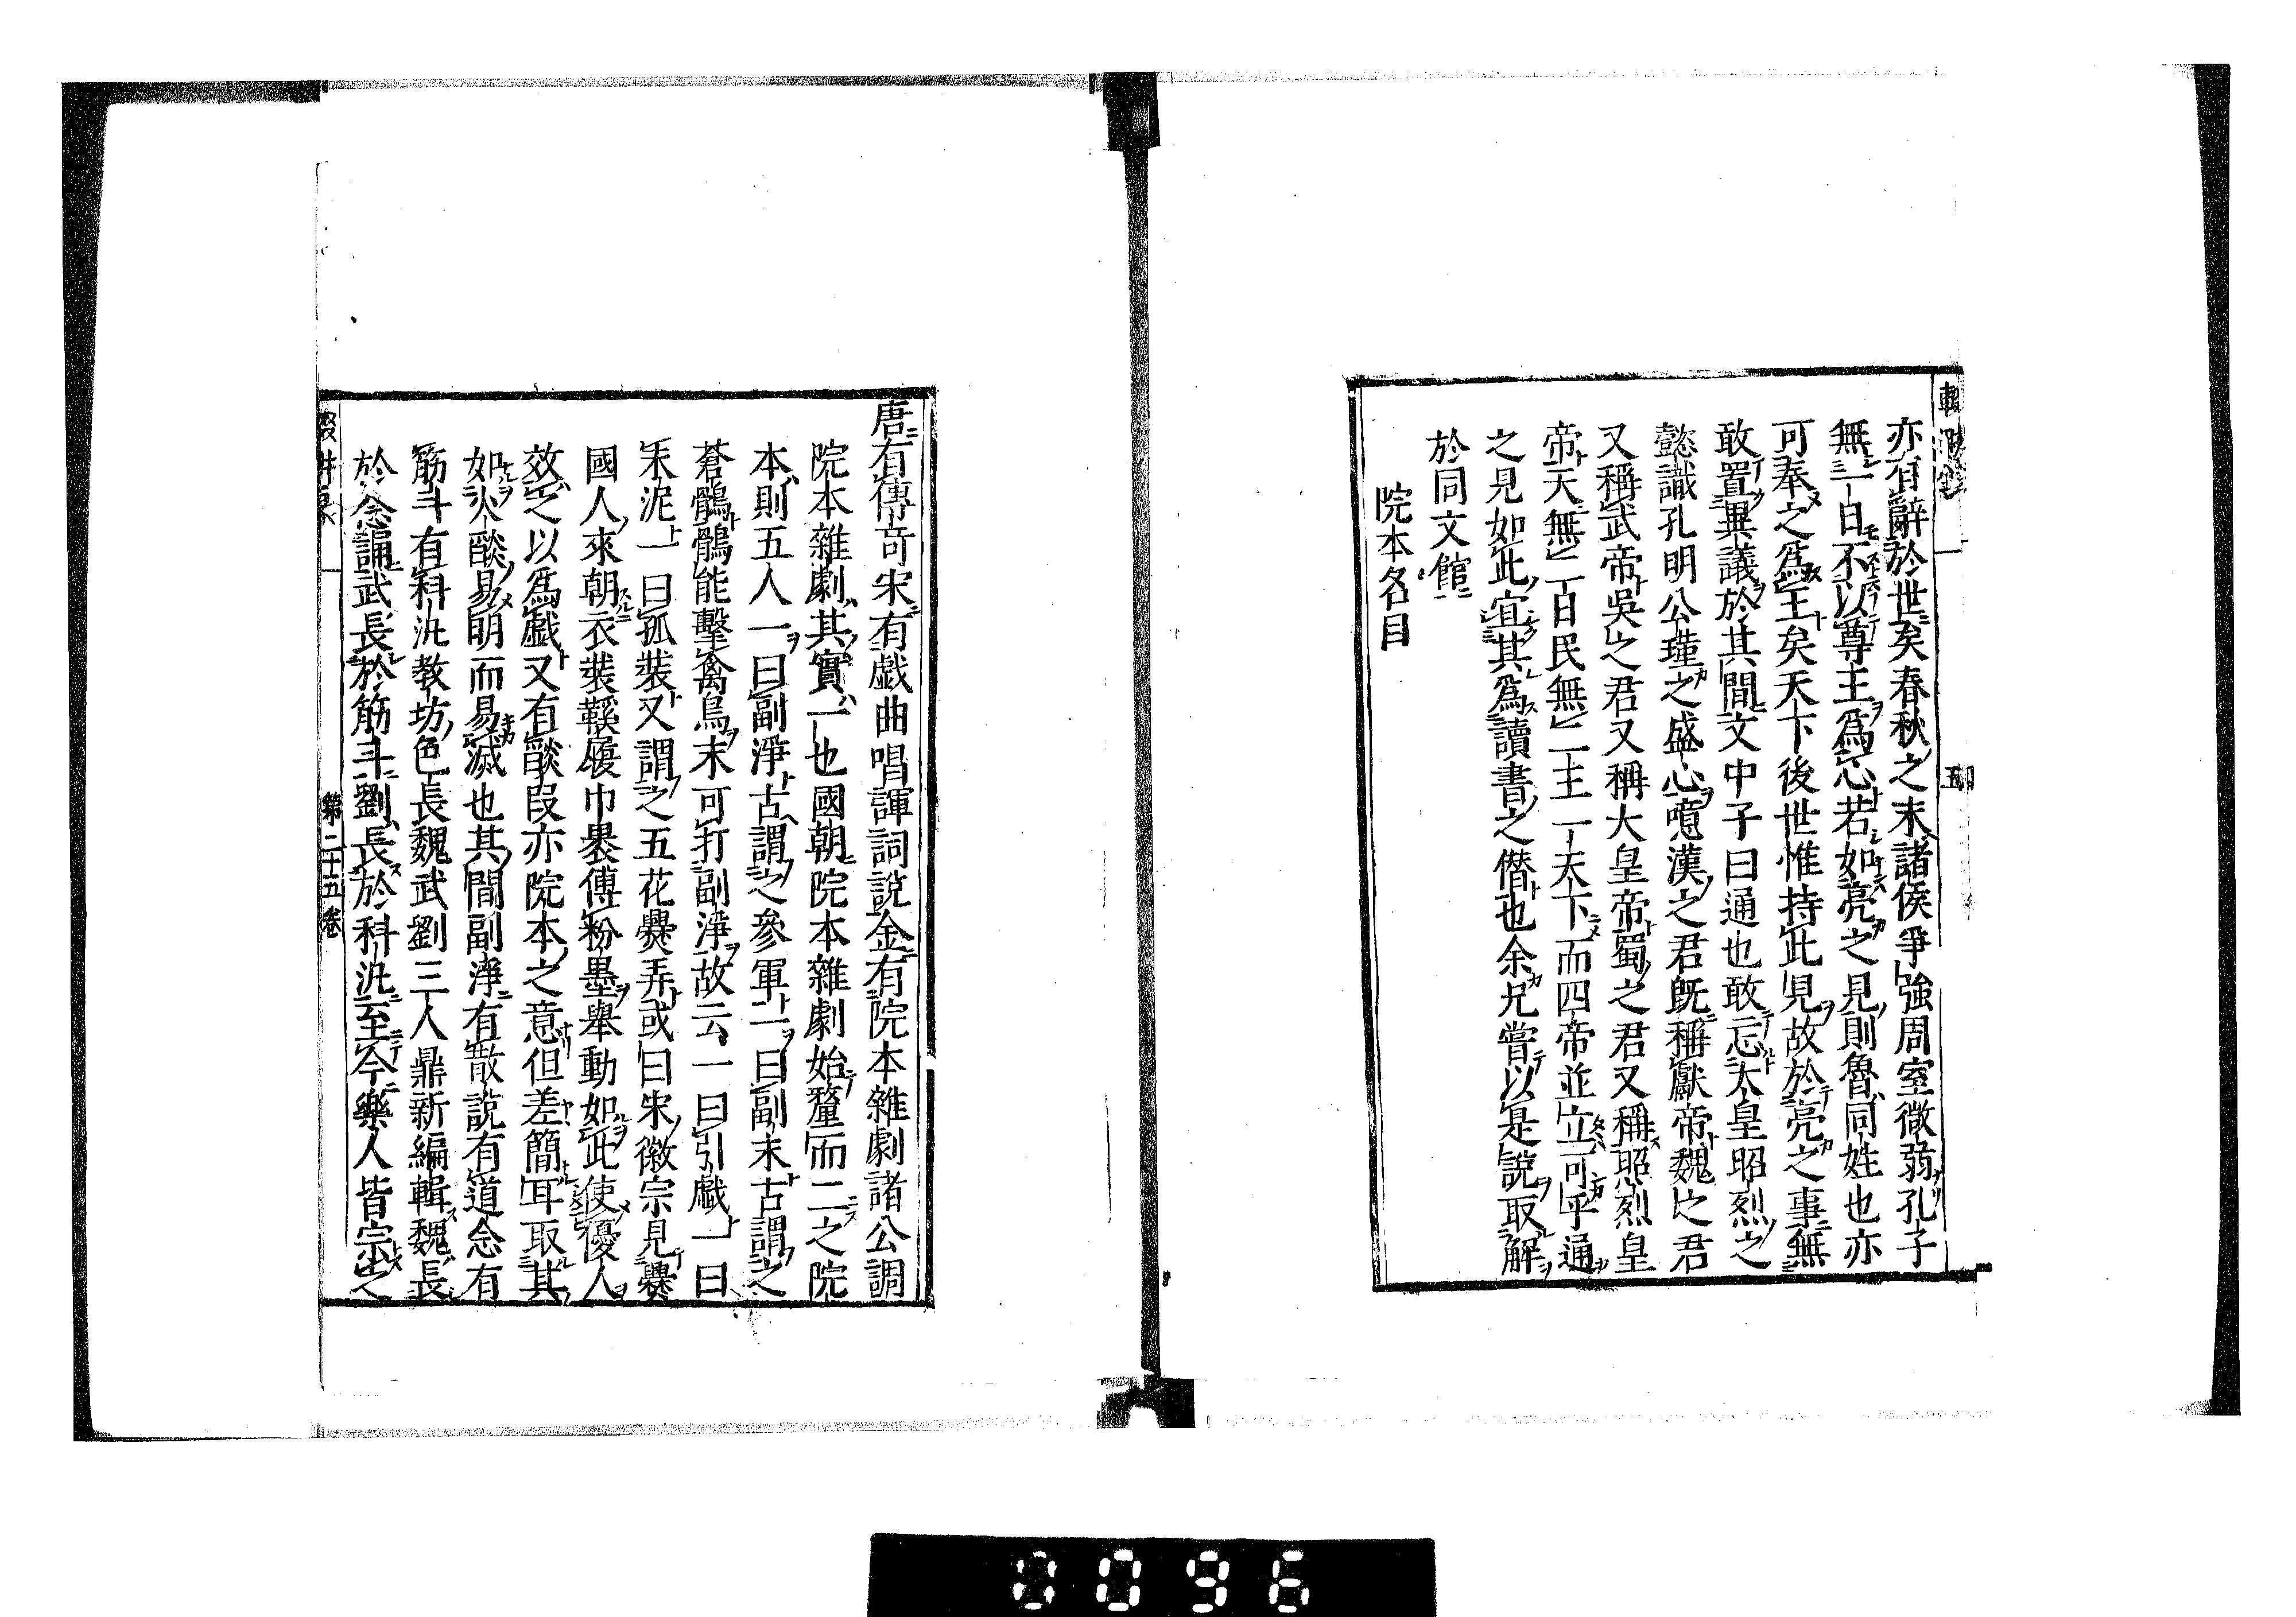 亦有辭於世矣春秋之末諸侯爭強周室微弱孔子
無一日不以尊王爲心若如亮之見則魯同姓也亦
可奉之爲王矣天下後世惟持此見故於亮之事無
敢置異議於其間文中子曰通也敢忘大皇昭烈之
懿識孔明公瑾之盛心噫漢之君旣稱獻帝魏之君
又稱武帝吳之君又稱大皇帝蜀之君又稱昭烈皇
帝天無二日民無二王一天下而四帝並立可乎通
之見如此宜其爲讀書之僭也余兄嘗以是說取解
於同文館
院本名目
五
唐有傳奇宋有戯曲唱諢詞說金有院本雜劇諸公調
院本雜劇其實一也國朝院本雜劇始釐而二之院
本則五人一曰副淨古謂之參軍一曰副末古謂之
蒼鶻鶻能擊禽鳥末可打副淨故云一曰引戯一曰
末泥一曰孤裝又謂之五花爨弄或曰宋徽宗見爨
國人來朝衣裝鞵履巾裹傅粉墨舉動如此使優人
效之以爲戯又有燄段亦院本之意但差簡耳取其
如火燄易明而易滅也其間副淨有散說有道念有
筋斗有科汎教坊色長魏武劉三人鼎新編輯魏長
於念誦武長於筋斗劉長於科汎至今樂人皆宗之
第二十五卷
0096